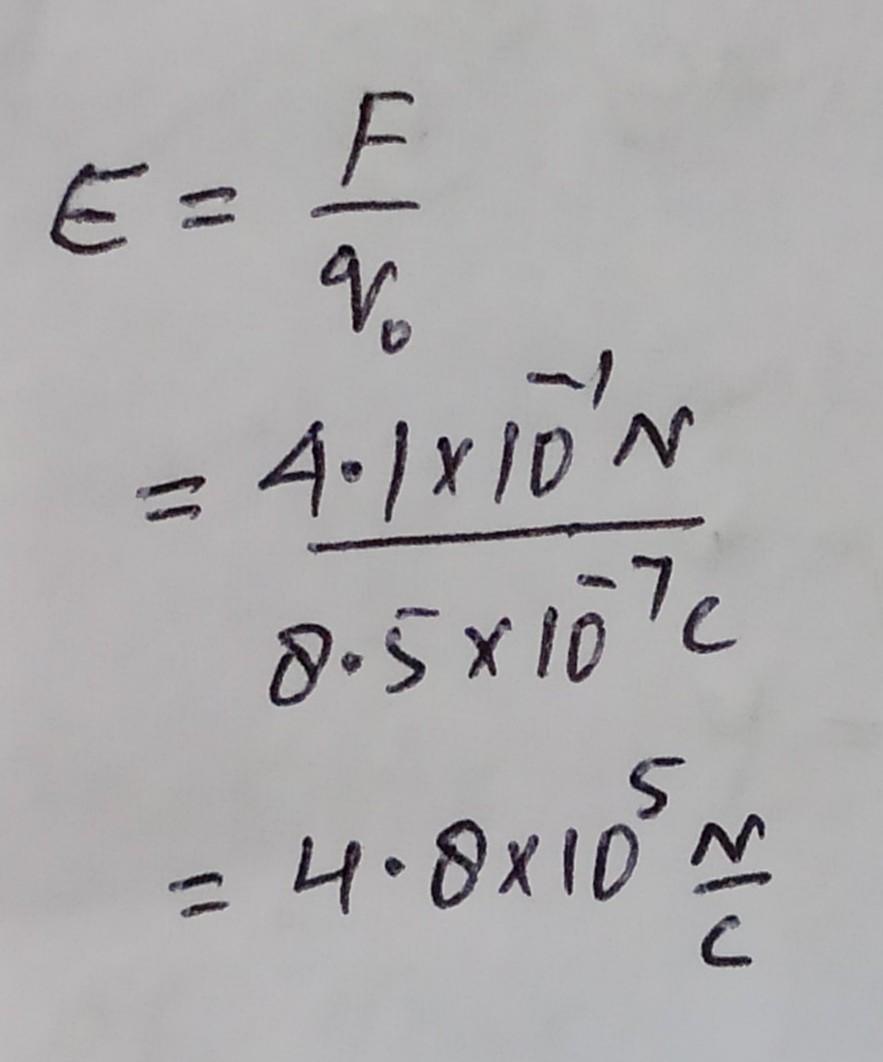 E = F/q₀
= 4.1 × 10⁻¹ N / 8.5 × 10⁻⁷ C
= 4.8 × 10⁵ N/C